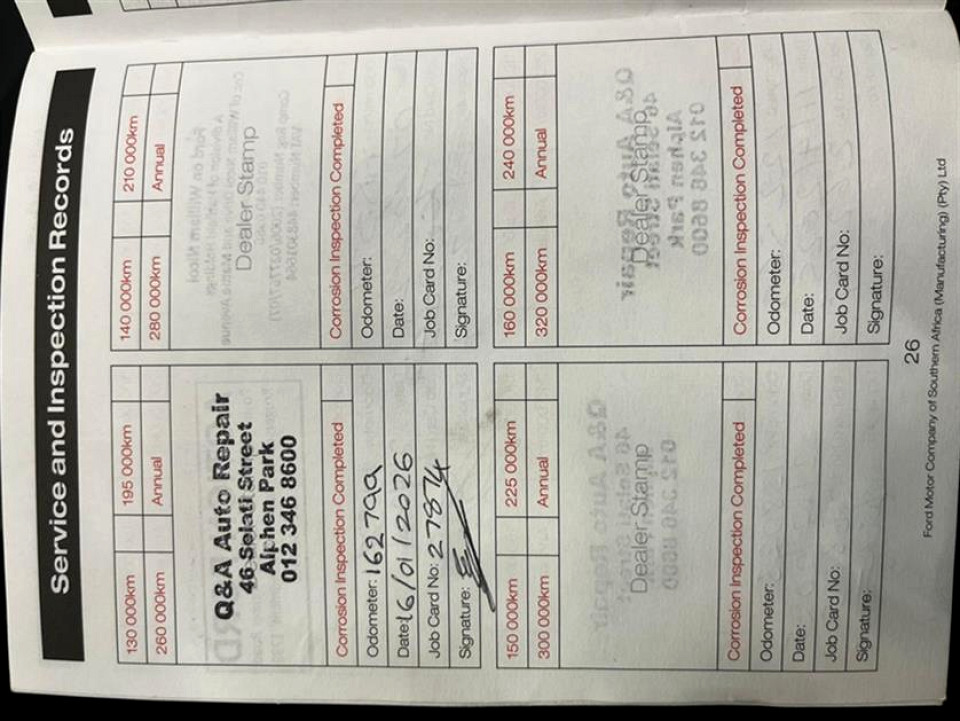 Service and Inspection Records
130 000km 195 000km
260 000km Annual
Q&A Auto Repair
46 Selati Street
Alphen Park
012 346 8600
Corrosion Inspection Completed
Odometer: 162799
Date: 16/01/2026
Job Card No: 27874
Signature:
140 000km 210 000km
280 000km Annual
Dealer Stamp
Corrosion Inspection Completed
Odometer:
Date:
Job Card No:
Signature:
150 000km 225 000km
300 000km Annual
Dealer Stamp
Corrosion Inspection Completed
Odometer:
Date:
Job Card No:
Signature:
160 000km 240 000km
320 000km Annual
Dealer Stamp
Corrosion Inspection Completed
Odometer:
Date:
Job Card No:
Signature:
26
Ford Motor Company of Southern Africa (Manufacturing) (Pty) Ltd